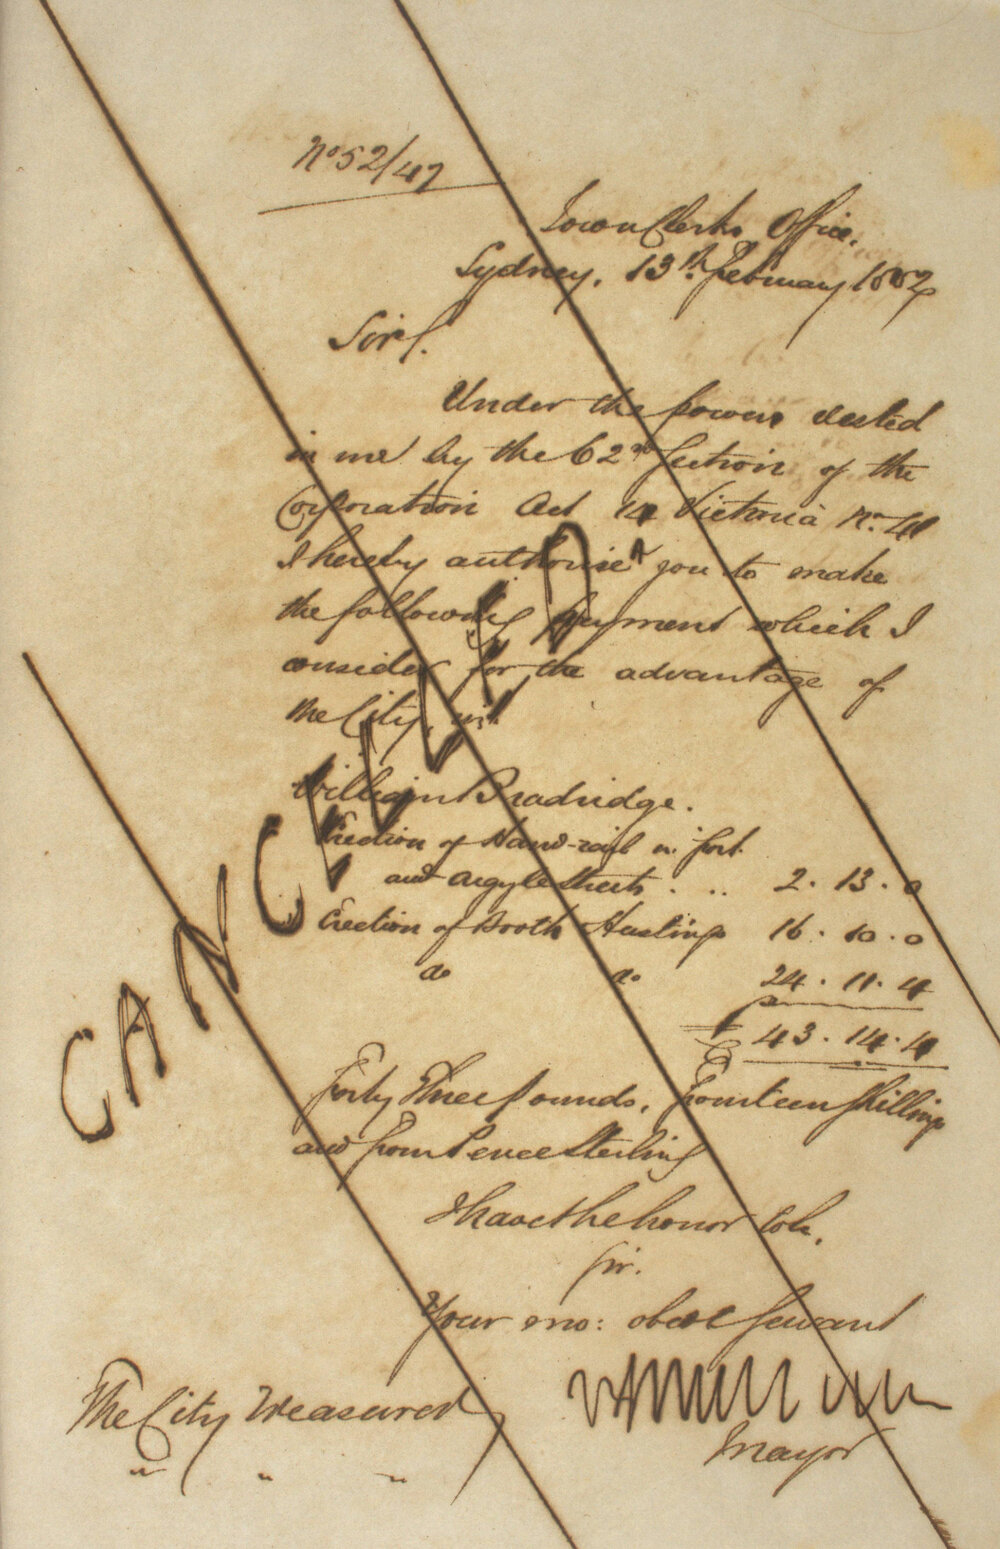 No 52/47
Town Clerks Office.
Sydney, 13th February 1852
Sir,
Under the powers vested
in me by the 62nd Section of the
Corporation Act 14 Victoria No. 41
I hereby authorise you to make
the following payment which I
consider for the advantage of
the City, viz.
William Bradridge.
Erection of Hand-rail in Fort
and Argyle Streets . .. 2. 13. 0
Erection of Booth Hustings 16. 10. 0
do do 24. 11. 4
£ 43. 14. 4
Forty Three pounds, Fourteen Shillings
and Four Pence Sterling
I have the honor to be,
Sir.
Your mo: obdt Servant
Mayor
The City Treasurer
" " "
CANCELLED